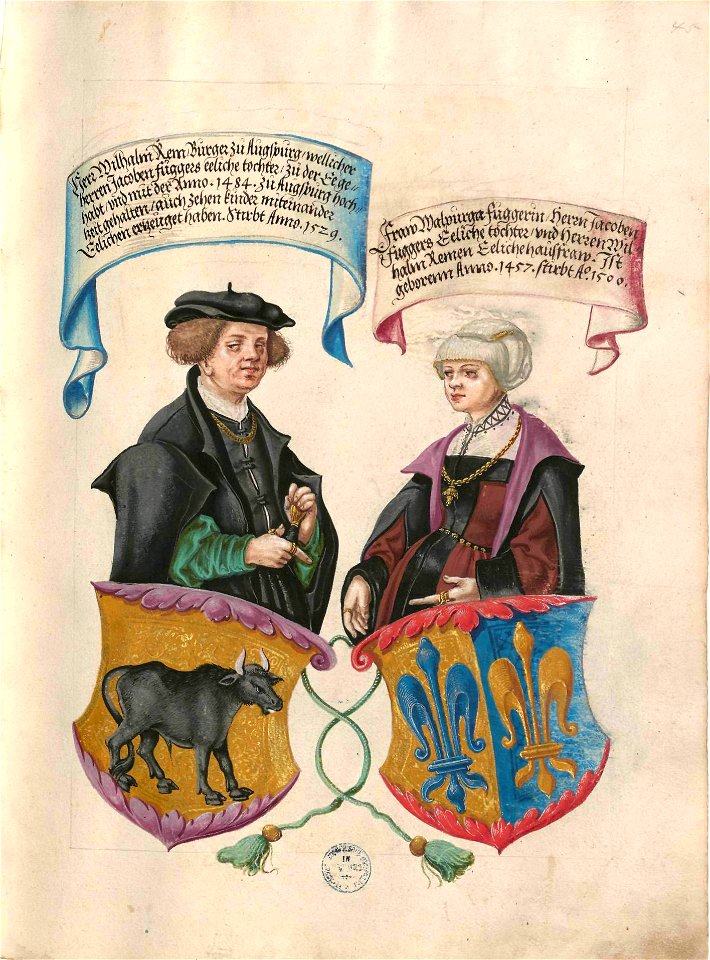 Herr Wilhalm Rem Burger zu Augspurg / wellicher
herren Jacoben fuggers eeliche tochter / zu der Ee ge-
habt / vnd mit der Anno . 1484 . zu Augspurg hoch-
keit gehalten / auch zehen kinder miteinander
Eelichen erzeuget haben . Stirbt Anno . 1529 .
Fraw Walpurga fuggerin / Herrn Jacoben
Fuggers Eeliche tochter / vnd Herren Wil-
halm Remen Eeliche hausfraw . Ist
geborenn Anno . 1457 . stirbt Aº . 1500 .